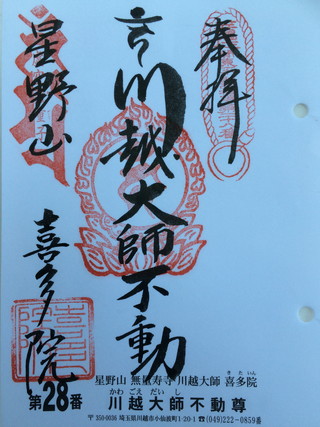 奉拝
川越大師不動
星野山
喜多院
星野山 無量寿寺 川越大師 喜多院
きたいん
かわごえだいし
第28番 川越大師不動尊
〒350-0036 埼玉県川越市小仙波町1-20-1 ☎(049)222-0859番